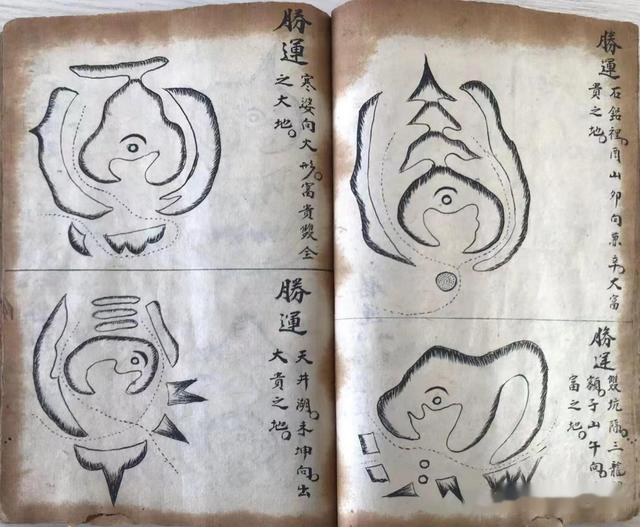 勝運
石鉛裡酉山夘向兼辛大富
貴之地。
勝運
雙坑
三龍
額子山午向
富之地。
勝運
寒婆向火形。富貴雙全
之大地。
勝運
天井湖。未坤向出
大貴之地。